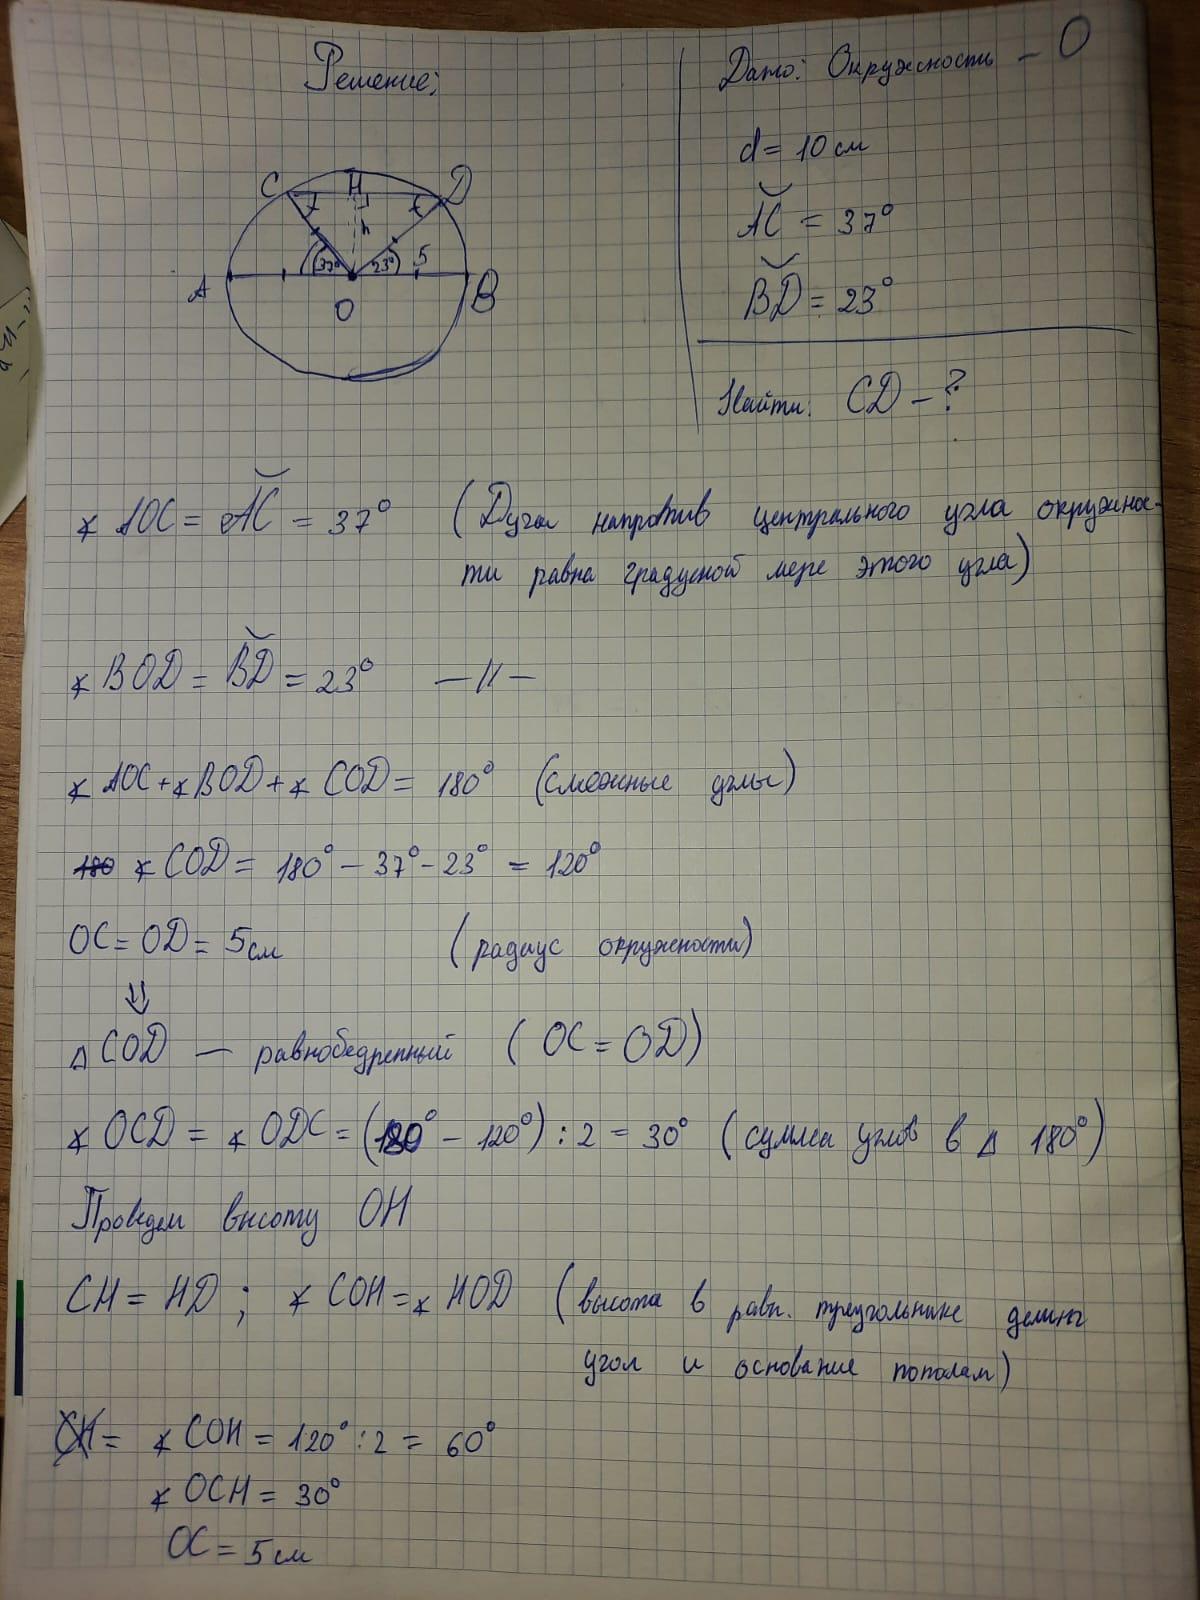 Решение:
Дано: Окружность - О
d = 10 см
AC = 37°
BD = 23°
Найти: CD - ?
C H D
h
37° 23° 5
A B
O
∡ AOC = AC = 37° (Дуга напротив центрального угла окружнос-
ти равна градусной мере этого угла)
∡ BOD = BD = 23° —//—
∡ AOC + ∡ BOD + ∡ COD = 180° (смежные углы)
180 ∡ COD = 180° - 37° - 23° = 120°
OC = OD = 5 см (радиус окружности)
⇓
△ COD — равнобедренный (OC = OD)
∡ OCD = ∡ ODC = (180° - 120°) : 2 = 30° (сумма углов в △ 180°)
Проведем высоту OH
CH = HD ; ∡ COH = ∡ HOD (высота в равн. треугольнике делит
угол и основание пополам)
CH = ∡ COH = 120° : 2 = 60°
∡ OCH = 30°
OC = 5 см